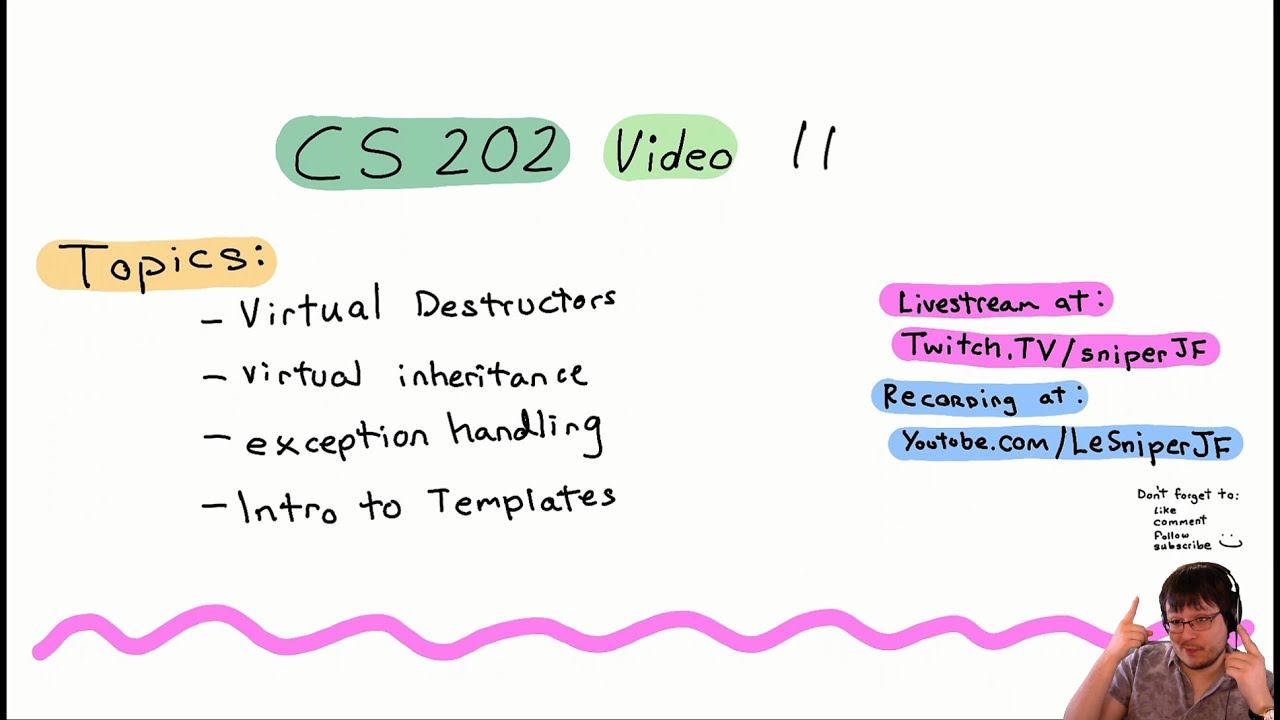 CS 202 Video 11
Topics:
- Virtual Destructors
- virtual inheritance
- exception handling
- Intro to Templates
Livestream at:
Twitch.TV/sniperJF
Recording at:
Youtube.com/LeSniperJF
Don't forget to:
Like
comment
follow
subscribe